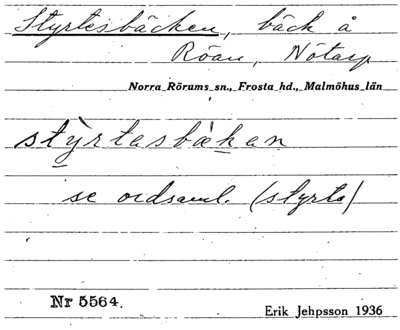 Styrtesbäcken, bäck å
Röan, Nötarp
Norra Rörums sn., Frosta hd., Malmöhus län
stỳrtasbækan
se ordsaml. (styrta)
Nr 5564.
Erik Jehpsson 1936